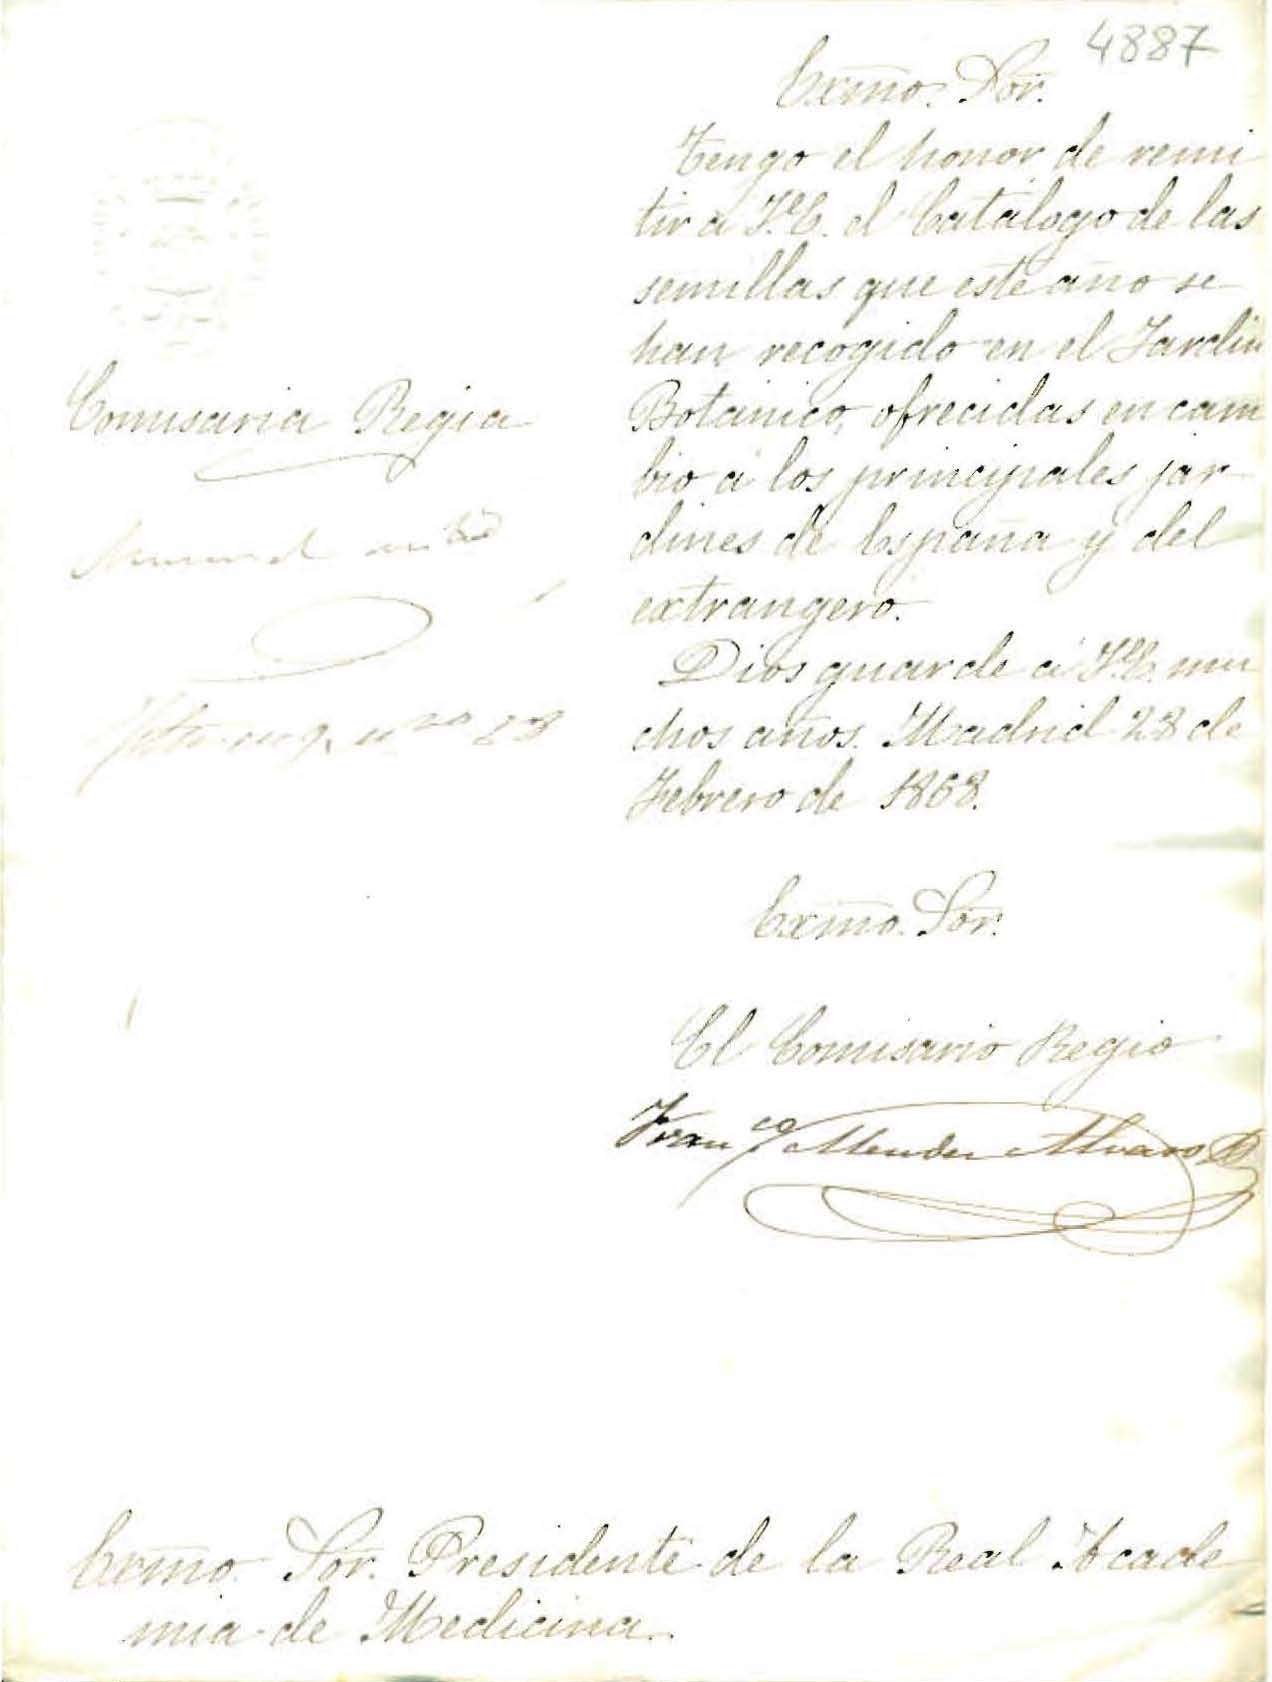 4887
Exmo. Sor.
Tengo el honor de remi
tir á V.E. el Catálogo de las
semillas que este año se
han recogido en el Jardin
Botánico, ofrecidas en cam
bio á los principales jar
dines de España y del
extrangero.
Dios guarde á V.E. mu
chos años. Madrid 28 de
Febrero de 1868.
Exmo. Sor.
El Comisario Regio
Franco Mendez Alvaro
Comisaria Regia
28
Exmo. Sor. Presidente de la Real Acade
mia de Medicina.